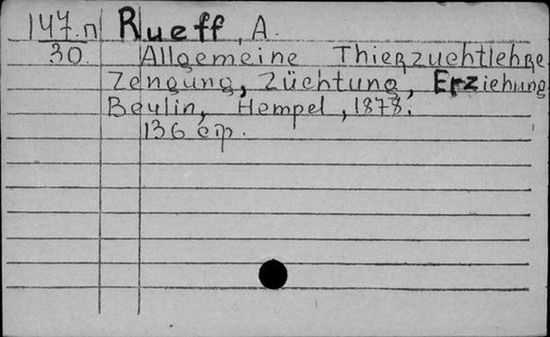 147.п Rueff, A.
30. Allgemeine Thierzuchtlehre
Zengung, Züchtung, Erziehung
Beulin, Hempel, 1878.
136 стр.